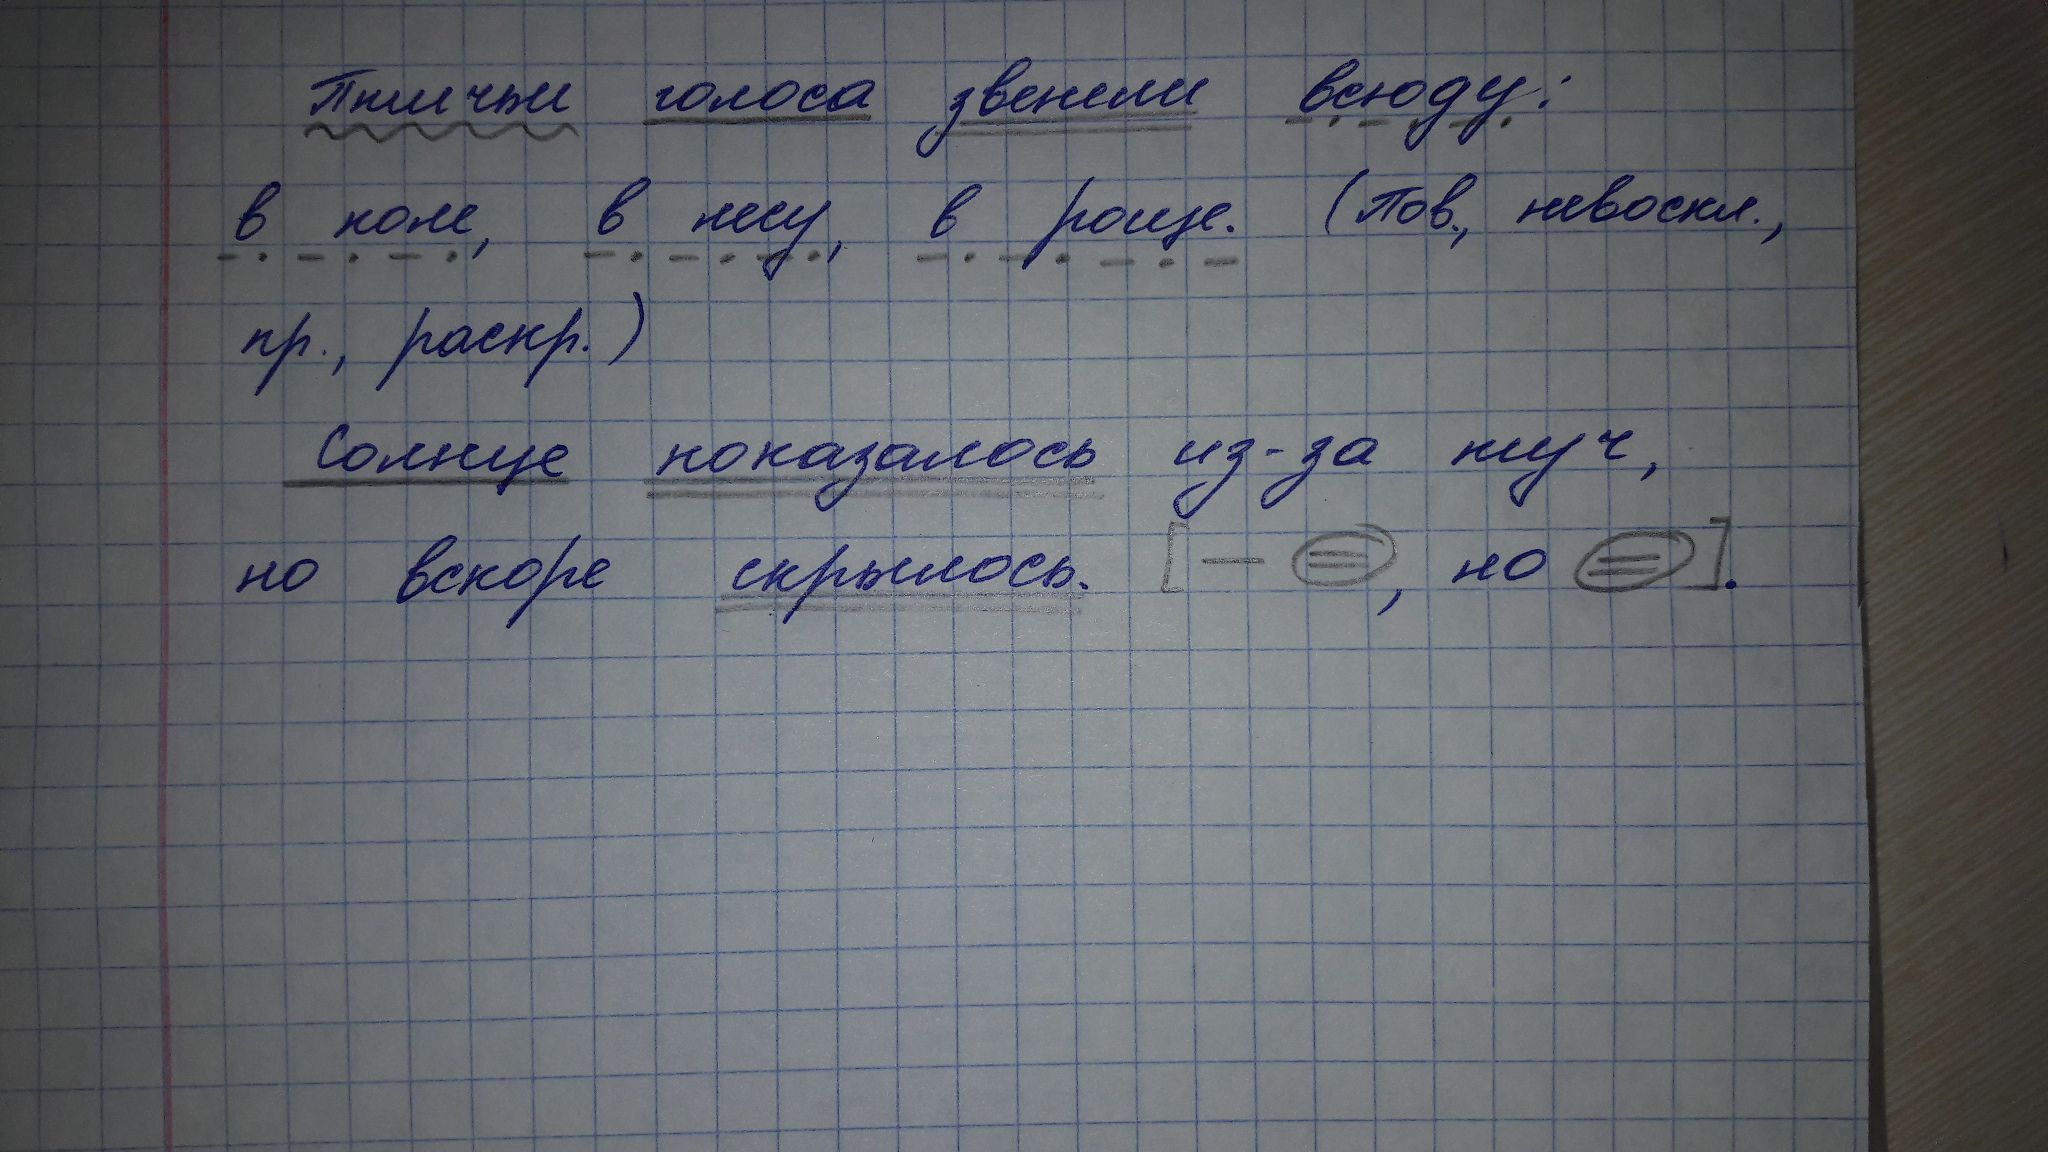 Птичьи голоса звенели всюду:
в поле, в лесу, в роще. (Пов., невоскл.,
пр., распр.)
Солнце показалось из-за туч,
но вскоре скрылось. [— =, но =].